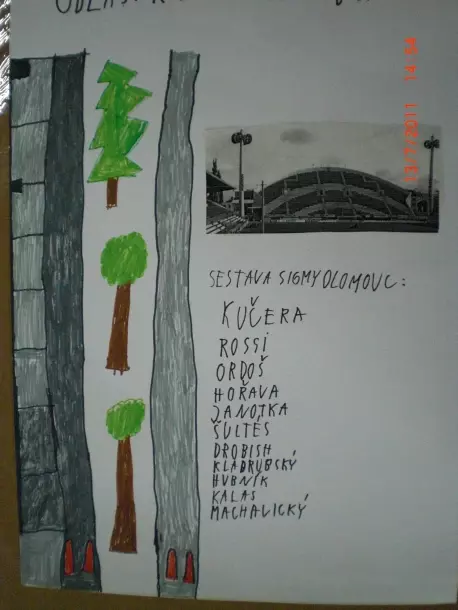 SESTAVA SIGMY OLOMOUC:
KUČERA
ROSSI
ORDOŠ
HOŘAVA
JANOTKA
ŠULTÉS
DROBISH
KLADRUBSKÝ
HUBNÍK
KALAS
MACHALICKÝ
13/7/2011